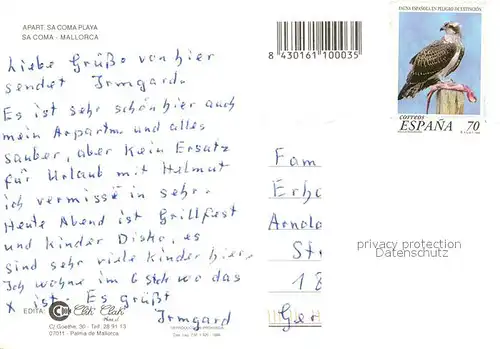 APART. SA COMA PLAYA
SA COMA - MALLORCA
Liebe Grüße von hier
sendet Irmgard.
Es ist sehr schön hier auch
mein Apartm und alles
sauber, aber kein Ersatz
für Urlaub mit Helmut
ich vermisse in sehr.
Heute Abend ist Grillfest
und Kinder Disko, es
sind sehr viele Kinder hier.
Ich wohne im 6 Stck wo das
x ist. Es grüßt
Irmgard
EDITA:
C/ Goethe, 30 - Telf. 28 91 13
07011 - Palma de Mallorca
8 430161 100035
FAUNA ESPAÑOLA EN PELIGRO DE EXTINCION
correos
ESPAÑA 70
Fam
Erho
Arnolo
St
18
Ger
privacy protection
Datenschutz